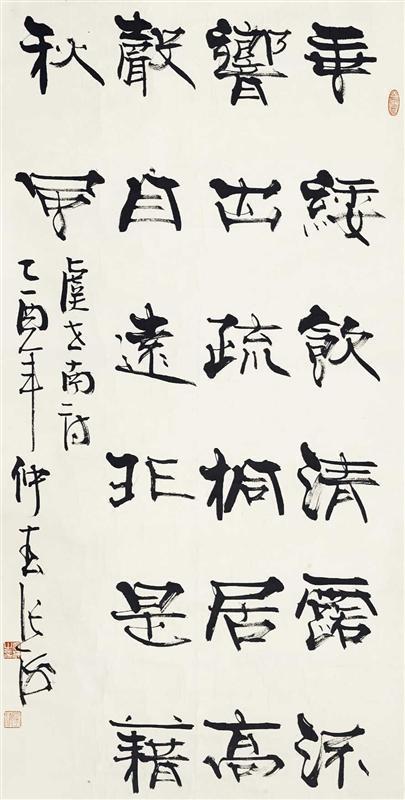 垂緌飲清露流
響出疏桐居高
聲自遠非是藉
秋風
虞世南詩
乙酉年仲春張海